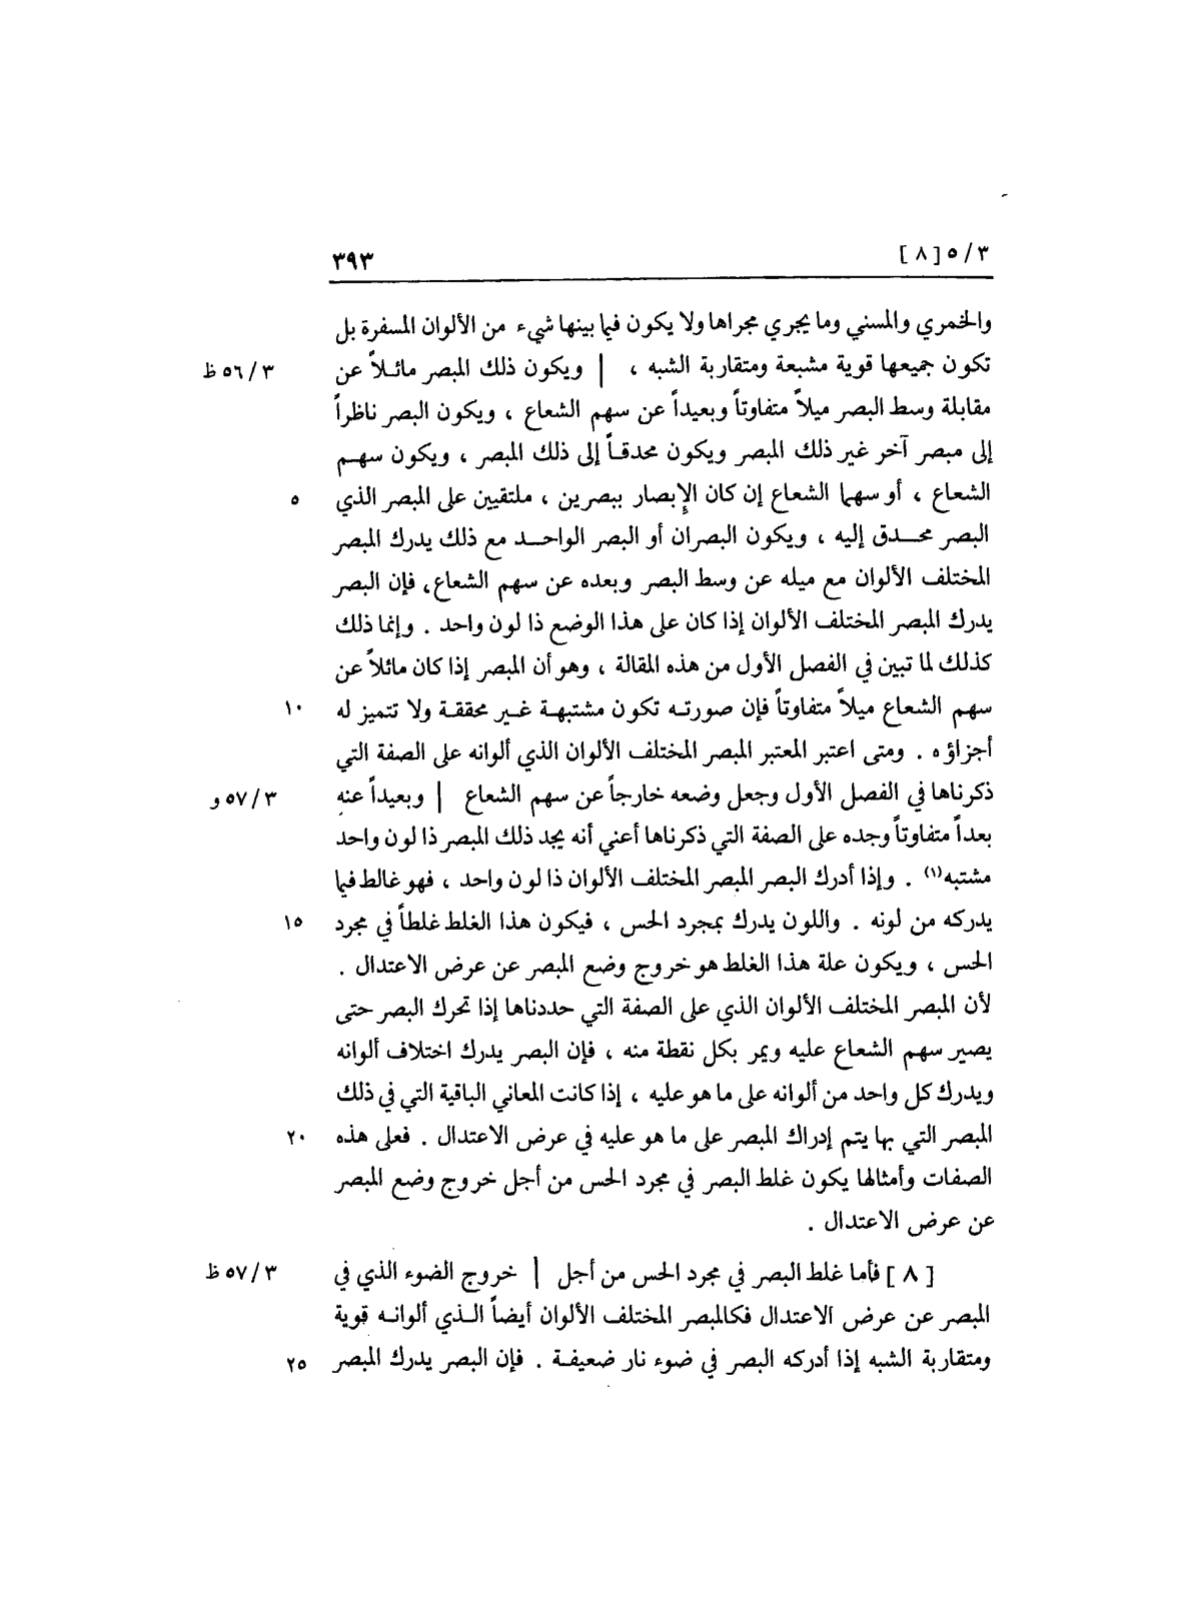 ٣/٥[٨] ٣٩٣
والخمري والمسني وما يجري مجراها ولا يكون فيما بينها شيء من الألوان المسفرة بل
تكون جميعها قوية مشبعة ومتقاربة الشبه ، | ويكون ذلك المبصر مائلاً عن ٣/٥٦ ظ
مقابلة وسط البصر ميلاً متفاوتاً وبعيداً عن سهم الشعاع ، ويكون البصر ناظراً
إلى مبصر آخر غير ذلك المبصر ويكون محدقاً إلى ذلك المبصر ، ويكون سهم
الشعاع ، أو سهما الشعاع إن كان الإبصار ببصرين ، ملتقيين على المبصر الذي ٥
البصر محدق إليه ، ويكون البصران أو البصر الواحد مع ذلك يدرك المبصر
المختلف الألوان مع ميله عن وسط البصر وبعده عن سهم الشعاع، فإن البصر
يدرك المبصر المختلف الألوان إذا كان على هذا الوضع ذا لون واحد . وإنما ذلك
كذلك لما تبين في الفصل الأول من هذه المقالة ، وهو أن المبصر إذا كان مائلاً عن
سهم الشعاع ميلاً متفاوتاً فإن صورته تكون مشتبهة غير محققة ولا تتميز له ١٠
أجزاؤه . ومتى اعتبر المعتبر المبصر المختلف الألوان الذي ألوانه على الصفة التي
ذكرناها في الفصل الأول وجعل وضعه خارجاً عن سهم الشعاع | وبعيداً عنه ٣/٥٧ و
بعداً متفاوتاً وجده على الصفة التي ذكرناها أعني أنه يجد ذلك المبصر ذا لون واحد
مشتبه(١) . وإذا أدرك البصر المبصر المختلف الألوان ذا لون واحد ، فهو غالط فيما
يدركه من لونه . واللون يدرك بمجرد الحس ، فيكون هذا الغلط غلطاً في مجرد ١٥
الحس ، ويكون علة هذا الغلط هو خروج وضع المبصر عن عرض الاعتدال .
لأن المبصر المختلف الألوان الذي على الصفة التي حددناها إذا تحرك البصر حتى
يصير سهم الشعاع عليه ويمر بكل نقطة منه ، فإن البصر يدرك اختلاف ألوانه
ويدرك كل واحد من ألوانه على ما هو عليه ، إذا كانت المعاني الباقية التي في ذلك
المبصر التي بها يتم إدراك المبصر على ما هو عليه في عرض الاعتدال . فعلى هذه ٢٠
الصفات وأمثالها يكون غلط البصر في مجرد الحس من أجل خروج وضع المبصر
عن عرض الاعتدال .
[ ٨ ] فأما غلط البصر في مجرد الحس من أجل | خروج الضوء الذي في ٣/٥٧ ظ
المبصر عن عرض الاعتدال فكالمبصر المختلف الألوان أيضاً الذي ألوانه قوية
ومتقاربة الشبه إذا أدركه البصر في ضوء نار ضعيفة . فإن البصر يدرك المبصر ٢٥